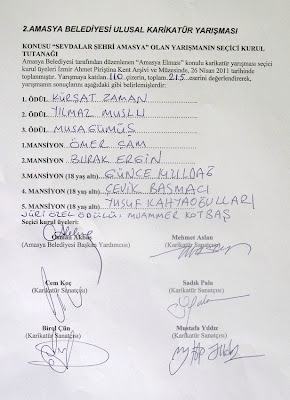 2.AMASYA BELEDİYESİ ULUSAL KARİKATÜR YARIŞMASI
KONUSU “SEVDALAR ŞEHRİ AMASYA” OLAN YARIŞMANIN SEÇİCİ KURUL
TUTANAĞI
Amasya Belediyesi tarafından düzenlenen “Amasya Elması” konulu karikatür yarışması seçici
kurul üyeleri İzmir Ahmet Piriştina Kent Arşivi ve Müzesinde, 26 Nisan 2011 tarihinde
toplanmıştır. Yarışmaya katılan 110 çizerin, toplam 215 eserini değerlendirerek,
yarışmanın sonuçlarını aşağıdaki gibi belirlemişlerdir:
1. ÖDÜL KÜRŞAT ZAMAN
2. ÖDÜL YILMAZ MUSLU
3. ÖDÜL MUSA GÜMÜŞ
1.MANSİYON ÖMER ÇAM
2.MANSİYON BURAK ERGİN
3. MANSİYON (18 yaş altı) GÜNCE MULDAĞ
4. MANSİYON (18 yaş altı) ÇEVİK BASMACI
5. MANSİYON (18 yaş altı) YUSUF KAHYAOĞULLARI
JÜRİ ÖZEL ÖDÜLÜ: MUAMMER KOTBAŞ
Seçici kurul üyeleri:
Osman Akbaş Mehmet Aslan
(Amasya Belediyesi Başkan Yardımcısı) (Karikatür Sanatçısı)
Cem Koç Sadık Pala
(Karikatür Sanatçısı) (Karikatür Sanatçısı)
Birol Çün Mustafa Yıldız
(Karikatür Sanatçısı) (Karikatür Sanatçısı)